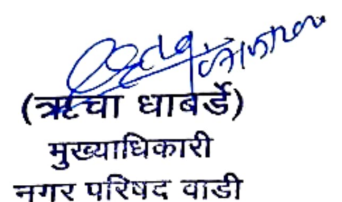 (ऋचा धाबर्डे)
मुख्याधिकारी
नगर परिषद वाडी